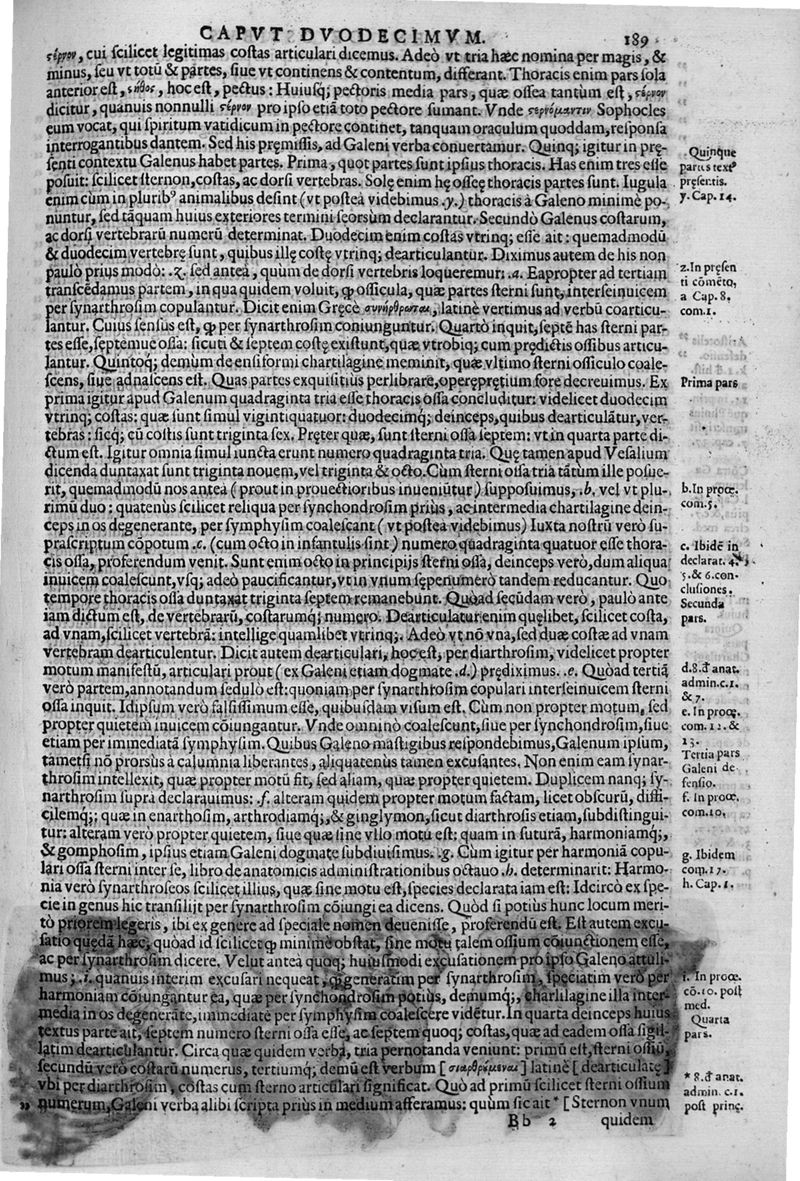 CAPVT DVODECIMVM. 189
στέρνον, cui scilicet legitimas costas articulari dicemus. Adeò vt tria hæc nomina per magis, &
minus, seu vt totū & partes, siue vt continens & contentum, differant. Thoracis enim pars sola
anterior est, στῆθος, hoc est, pectus: Huiusq; pectoris media pars, quæ ossea tantùm est, στέρνον
dicitur, quanuis nonnulli στέρνον pro ipso etiā toto pectore sumant. Vnde στερνόμαντιν Sophocles
eum vocat, qui spiritum vatidicum in pectore continet, tanquam oraculum quoddam, responsa
interrogantibus dantem. Sed his pręmissis, ad Galeni verba conuertamur. Quinq; igitur in prę-
senti contextu Galenus habet partes. Prima, quot partes sunt ipsius thoracis. Has enim tres esse
posuit: scilicet sternon, costas, ac dorsi vertebras. Solę enim hę osseę thoracis partes sunt. Iugula
enim cùm in plurib⁹ animalibus desint (vt posteà videbimus .y.) thoracis à Galeno minimè po-
nuntur, sed tāquam huius exteriores termini seorsùm declarantur. Secundò Galenus costarum,
ac dorsi vertebrarū numerū determinat. Duodecim enim costas vtrinq; esse ait: quemadmodū
& duodecim vertebrę sunt, quibus illę costę vtrinq; dearticulantur. Diximus autem de his non
paulò prius modò: .z. sed anteà, quùm de dorsi vertebris loqueremur: .a. Eapropter ad tertiam
transcēdamus partem, in qua quidem voluit, ꝙ ossicula, quæ partes sterni sunt, interseinuicem
per synarthrosim copulantur. Dicit enim Gręcè συνήρθρωται, latinè vertimus ad verbū coarticu-
lantur. Cuius sensus est, ꝙ per synarthrosim coniunguntur. Quartò inquit, septē has sterni par-
tes esse, septemue ossa: sicuti & septem costę existunt, quæ vtrobiq; cum prędictis ossibus articu-
lantur. Quintoq; demùm de ensiformi chartilagine meminit, quæ vltimo sterni ossiculo coale-
scens, siue adnascens est. Quas partes exquisitiùs perlibrare, operęprętium fore decreuimus. Ex
prima igitur apud Galenum quadraginta tria esse thoracis ossa concluditur: videlicet duodecim
vtrinq; costas: quæ sunt simul vigintiquatuor: duodecimq; deinceps, quibus dearticulātur, ver-
tebras: sicq; cū costis sunt triginta sex. Pręter quæ, sunt sterni ossa septem: vt in quarta parte di-
ctum est. Igitur omnia simul iuncta erunt numero quadraginta tria. Quę tamen apud Vesalium
dicenda duntaxat sunt triginta nouem, vel triginta & octo. Cùm sterni ossa tria tātùm ille posue-
rit, quemadmodū nos anteà (prout in prouectioribus inueniūtur) supposuimus, .b. vel vt plu-
rimū duo: quatenùs scilicet reliqua per synchondrosim priùs, ac intermedia chartilagine dein-
ceps in os degenerante, per symphysim coalescant (vt posteà videbimus) Iuxta nostrū verò su-
prascriptum cōpotum .c. (cum octo in infantulis sint) numero quadraginta quatuor esse thora-
cis ossa, proferendum venit. Sunt enim octo in principijs sterni ossa, deinceps verò, dum aliqua
inuicem coalescunt, vsq; adeò paucificantur, vt in vnum sępenumerò tandem reducantur. Quo
tempore thoracis ossa duntaxat triginta septem remanebunt. Quòad secūdam verò, paulò ante
iam dictum est, de vertebrarū, costarumq; numero. Dearticulatur enim quęlibet, scilicet costa,
ad vnam, scilicet vertebrā: intellige quamlibet vtrinq;. Adeò vt nō vna, sed duæ costæ ad vnam
vertebram dearticulentur. Dicit autem dearticulari, hoc est, per diarthrosim, videlicet propter
motum manifestū, articulari prout (ex Galeni etiam dogmate .d.) prędiximus. .e. Quòad tertiā
verò partem, annotandum sedulò est: quoniam per synarthrosim copulari interseinuicem sterni
ossa inquit. Idipsum verò falsissimum esse, quibusdam visum est. Cùm non propter motum, sed
propter quietem inuicem cōiungantur. Vnde omninò coalescunt, siue per synchondrosim, siue
etiam per immediatā symphysim. Quibus Galeno mastigibus respondebimus, Galenum ipsum,
tametsi nō prorsùs à calumnia liberantes, aliquatenùs tamen excusantes. Non enim eam synar-
throsim intellexit, quæ propter motū fit, sed aliam, quæ propter quietem. Duplicem nanq; sy-
narthrosim supra declarauimus: .f. alteram quidem propter motum factam, licet obscurū, diffi-
cilemq;: quæ in enarthosim, arthrodiamq;, & ginglymon, sicut diarthrosis etiam, subdistingui-
tur: alteram verò propter quietem, siue quæ sine vllo motu est: quam in suturā, harmoniamq;,
& gomphosim, ipsius etiam Galeni dogmate subdiuisimus. .g. Cùm igitur per harmoniā copu-
lari ossa sterni inter se, libro de anatomicis administrationibus octauo .h. determinarit: Harmo-
nia verò synarthroseos scilicet illius, quæ sine motu est, species declarata iam est: Idcircò ex spe-
cie in genus hic transilijt per synarthrosim cōiungi ea dicens. Quòd si potiùs hunc locum meri-
tò priorem legeris, ibi ex genere ad speciale nomen deuenisse, proferendū est. Est autem excu-
satio quędā hæc, quòad id scilicet ꝙ minimè obstat, sine motu talem ossium cōiunctionem esse,
ac per synarthrosim dicere. Velut anteà quoq; huiusmodi excusationem pro ipso Galeno attuli-
mus; .i. quanuis interim excusari nequeat, ꝙ generatim per synarthrosim, speciatim verò per
harmoniam cōiungantur ea, quæ per synchondrosim potiùs, demumq;, chartilagine illa inter-
media in os degenerāte, immediatè per symphysim coalescere vidētur. In quarta deinceps huius
textus parte ait, septem numero sterni ossa esse, ac septem quoq; costas, quæ ad eadem ossa sigil-
latim dearticulantur. Circa quæ quidem verba, tria pernotanda veniunt: primū est, sterni ossiū,
secundū verò costarū numerus, tertiumq; demū est verbum [διαρθρούμεναι] latinè [dearticulatę]
vbi per diarthrosim, costas cum sterno articulari significat. Quò ad primū scilicet sterni ossium
„ numerum, Galeni verba alibi scripta priùs in medium afferamus: quùm sic ait * [Sternon vnum
Bb 2 quidem
Quinque
partes textꝰ
pręsentis.
y. Cap. 14.
z. In pręsen
ti cōmēto,
a Cap. 8.
com. 1.
Prima pars
b. In proœ.
com. 5.
c. Ibidē in
declarat. 4.
5. & 6. con-
clusiones.
Secunda
pars.
d. 8. đ anat.
admin. c. 1.
& 7.
e. In proœ.
com. 12. &
13.
Tertia pars
Galeni de-
fensio.
f. In proœ.
com. 10.
g. Ibidem
com. 17.
h. Cap. 1.
i. In proœ.
cō. 10. post
med.
Quarta
pars.
* 8. đ anat.
admin. c. 1.
post princ.